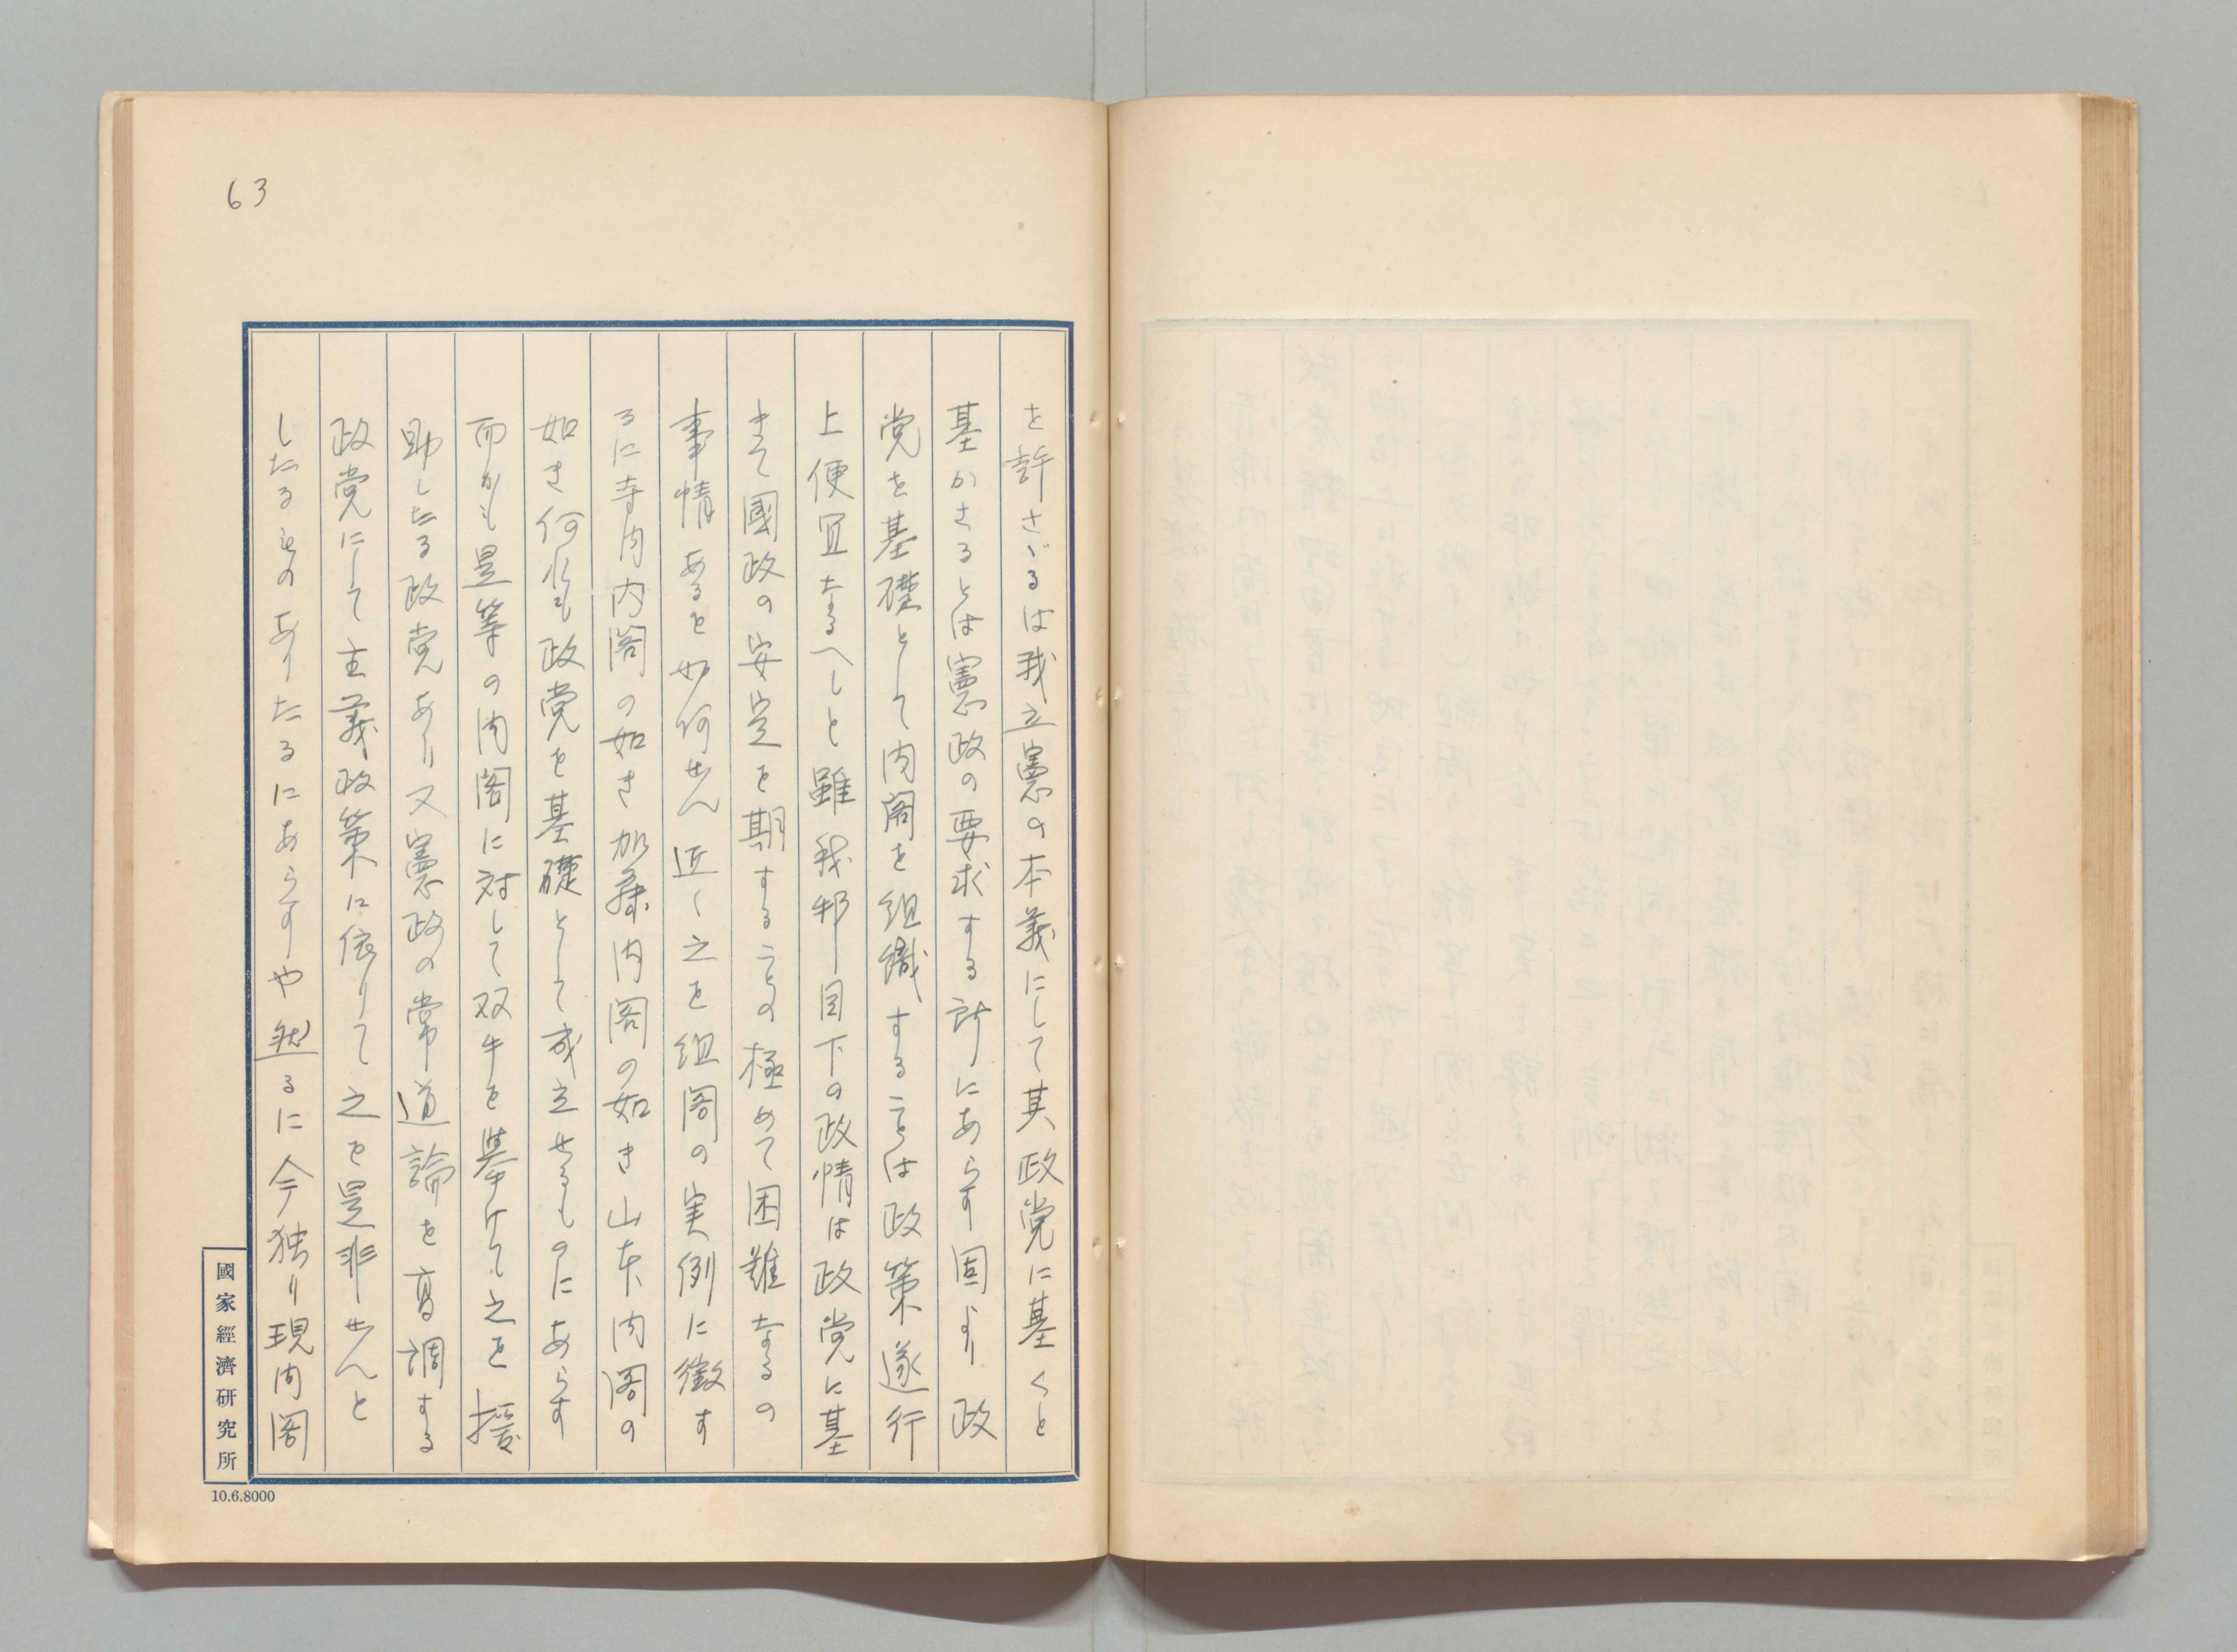 63
を許さゞるは我立憲の本義にして其政党に基くと
基かさるとは憲政の要求する所にあらす固より政
党を基礎として内閣を組織することは政策遂行
上便宜なるへしと雖我邦目下の政情は政党に基
きて國政の安定を期することの極めて困難なるの
事情あるを如何せん近く之を組閣の実例に徴す
るに寺内内閣の如き加藤内閣の如き山本内閣の
如き何れも政党を基礎として成立せるものにあらす
而かも是等の内閣に対して双手を挙けて之を援
助したる政党あり又憲政の常道論を高調する
政党にして主義政策に依りて之を是非せんと
したるものありたるにあらすや然るに今独り現内閣
國家經濟研究所
10.6.8000